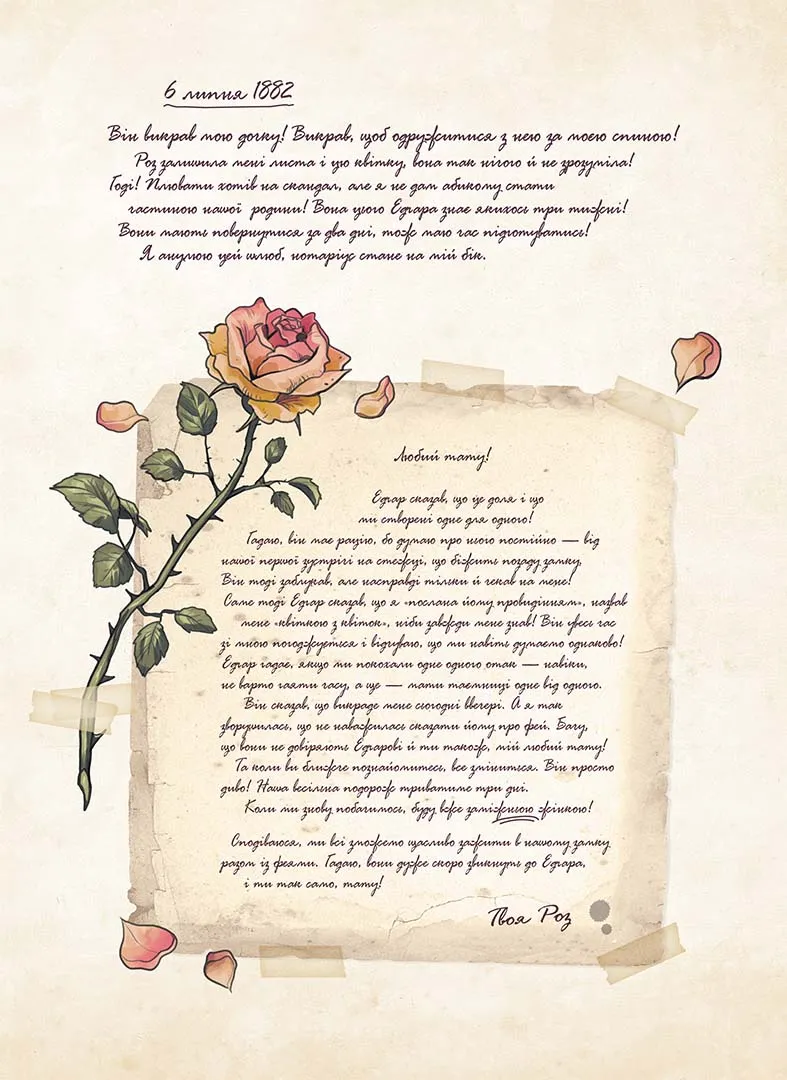 6 липня 1882
Він викрав мою дочку! Викрав, щоб одружитися з нею за моєю спиною!
Роз залишила мені листа і цю квітку, вона так нічого й не зрозуміла!
Годі! Плювати хотів на скандал, але я не дам абикому стати
частиною нашої родини! Вона цього Едгара знає якихось три тижні!
Вони мають повернутися за два дні, тож маю час підготуватись!
Я анулюю цей шлюб, нотаріус стане на мій бік.
Любий тату!
Едгар сказав, що це доля і що
ми створені одне для одного!
Гадаю, він має рацію, бо думаю про нього постійно — від
нашої першої зустрічі на стежці, що біжить позаду замку.
Він тоді заблукав, але насправді тільки й чекав на мене!
Саме тоді Едгар сказав, що я «послана йому провидінням», назвав
мене «квіткою з квіток», ніби завжди мене знав! Він увесь час
зі мною погоджується і відчуваю, що ми навіть думаємо однаково!
Едгар гадає, якщо ми покохали одне одного отак — навіки,
не варто гаяти часу, а ще — мати таємниці одне від одного.
Він сказав, що викраде мене сьогодні ввечері. А я так
зворушилась, що не наважилась сказати йому про фей. Бачу,
що вони не довіряють Едгарові й ти також, мій любий тату!
Та коли ви ближче познайомитесь, все зміниться. Він просто
диво! Наша весільна подорож триватиме три дні.
Коли ми знову побачимось, буду вже заміжньою жінкою!
Сподіваюся, ми всі зможемо щасливо зажити в нашому замку
разом із феями. Гадаю, вони дуже скоро звикнуть до Едгара,
і ти так само, тату!
Твоя Роз